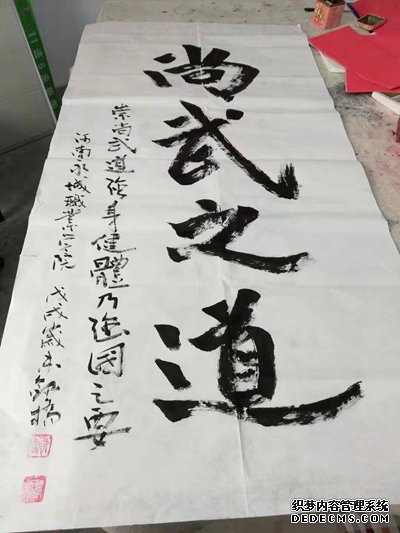 尚武之道
崇尚武道强身健體乃强國之要
河南永城職業学院 戊戌歲末
织梦内容管理系统
DEDECMS.COM